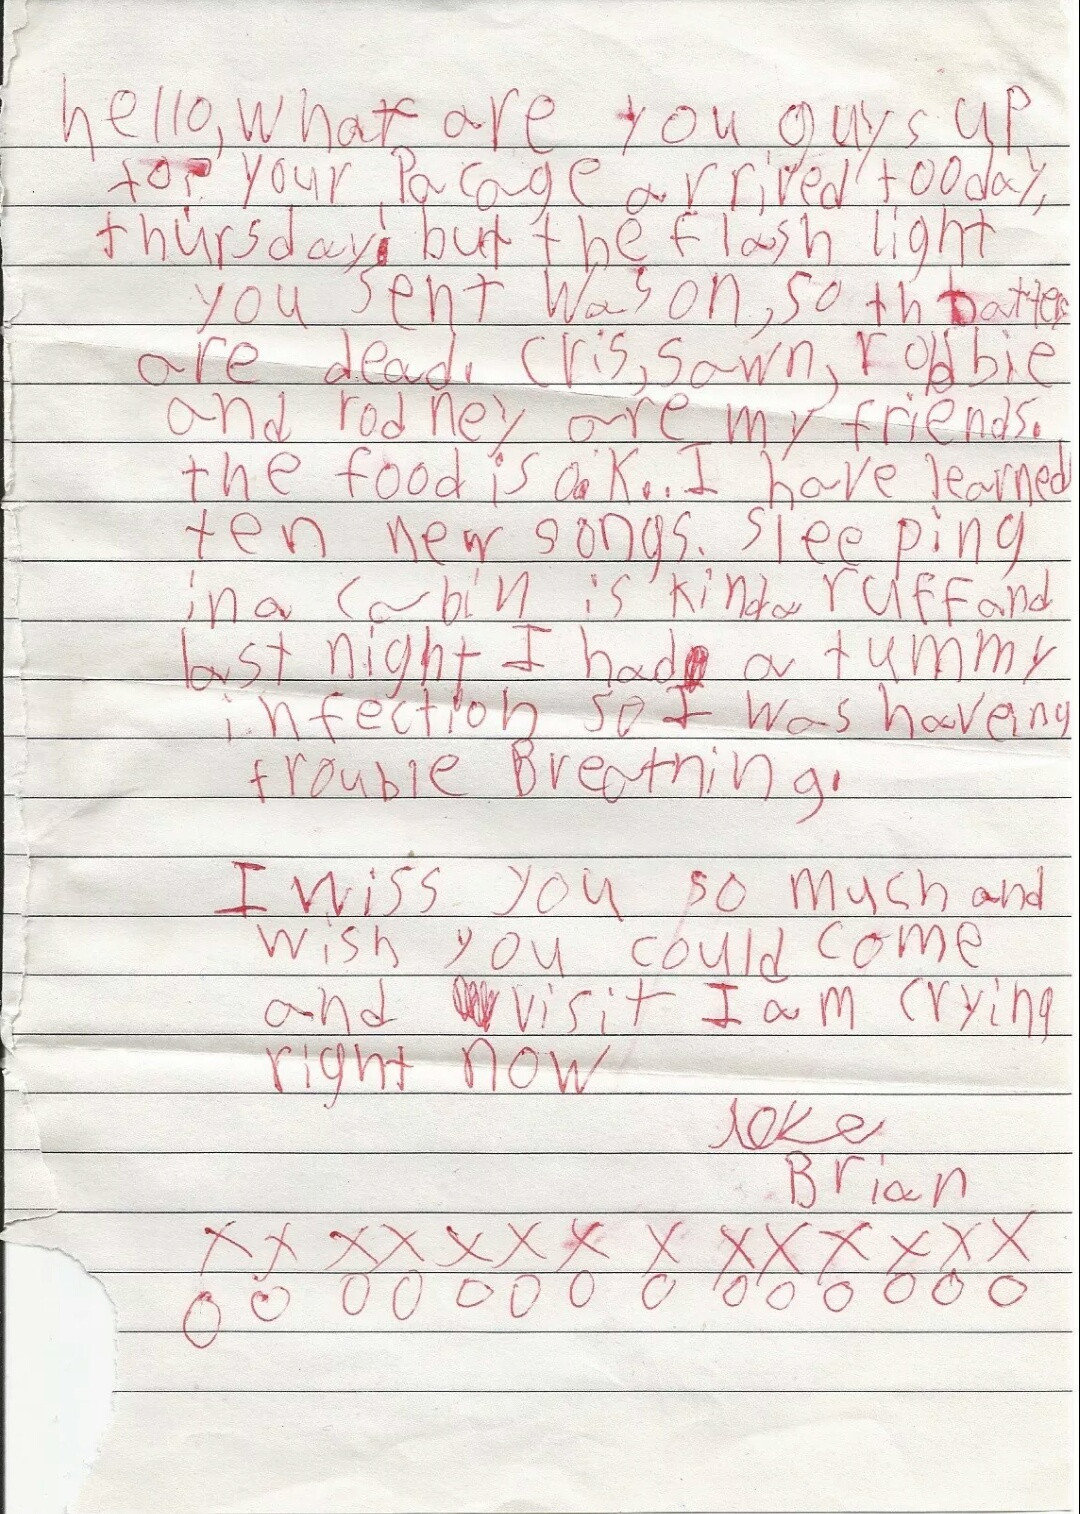 hello, what are you guys up
to? your Pacage arrived tooday,
thursday, but the flash light
you sent was on, so th batter
are dead. Cris, sawn, robbie
and rodney are my friends.
the food is o.k.. I have learned
ten new songs. sleeping
in a cabin is kinda ruff and
last night I had a tummy
infection so I was haveing
trouble Breathing.
I miss you so much and
wish you could come
and visit I am crying
right now
Brian
X X X X X X X X X X X X X X
O O O O O O O O O O O O O O